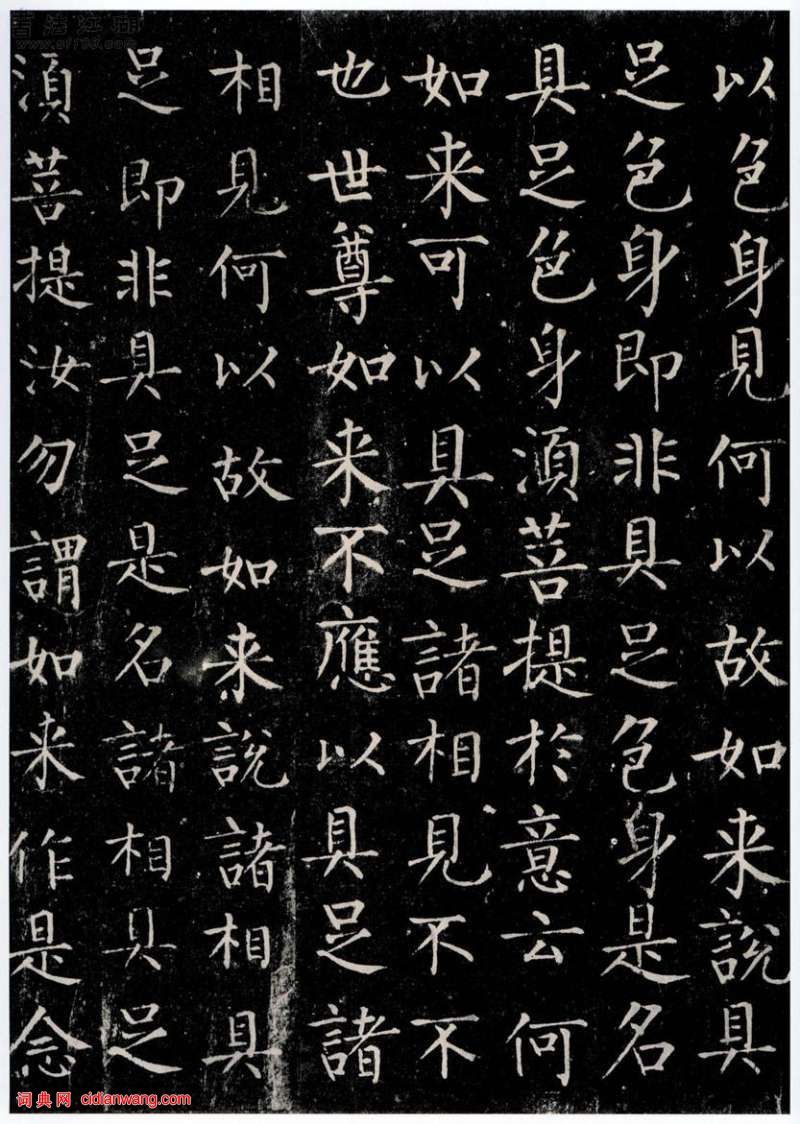 以色身見何以故如来說具
足色身即非具足色身是名
具足色身湏菩提於意云何
如来可以具足諸相見不不
也世尊如来不應以具足諸
相見何以故如来說諸相具
足即非具足是名諸相具足
湏菩提汝勿謂如来作是念
词典网 cidianwang.com